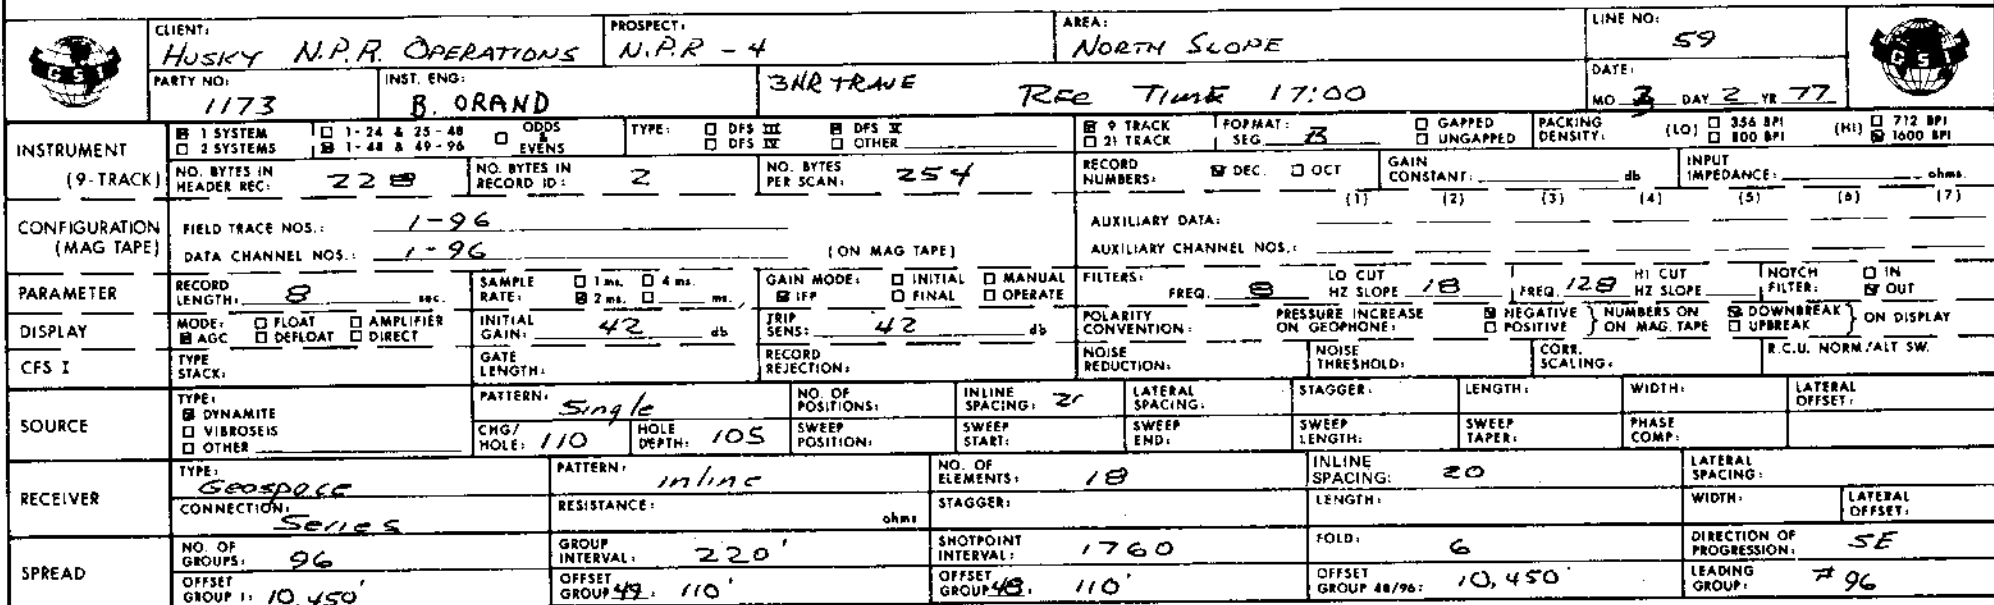 CLIENT: HUSKY N.P.R. OPERATIONS PROSPECT: N.P.R - 4 AREA: NORTH SLOPE LINE NO: 59
GSI
PARTY NO: 1173 INST. ENG: B. ORAND 3HR TRAVE REC TIME 17:00 DATE: MO 3 DAY 2 YR 77
GSI
INSTRUMENT (9-TRACK)
1 SYSTEM 1-24 & 25-48 ODDS & EVENS TYPE: DFS III DFS V 9 TRACK FORMAT: GAPPED PACKING (LO) 356 BPI (HI) 712 BPI
2 SYSTEMS 1-48 & 49-96 DFS IV OTHER 21 TRACK SEG B UNGAPPED DENSITY: 800 BPI 1600 BPI
NO. BYTES IN HEADER REC: 228 NO. BYTES IN RECORD ID: 2 NO. BYTES PER SCAN: 254 RECORD NUMBERS: DEC. OCT GAIN CONSTANT: db INPUT IMPEDANCE: ohms
(1) (2) (3) (4) (5) (6) (7)
CONFIGURATION (MAG TAPE)
FIELD TRACE NOS.: 1-96 AUXILIARY DATA:
DATA CHANNEL NOS.: 1-96 (ON MAG TAPE) AUXILIARY CHANNEL NOS.:
PARAMETER
RECORD LENGTH: 8 sec. SAMPLE RATE: 1 ms. 4 ms. 2 ms. ms. GAIN MODE: INITIAL MANUAL IFP FINAL OPERATE FILTERS: FREQ. 8 LO CUT HZ SLOPE 18 FREQ. 128 HI CUT HZ SLOPE NOTCH FILTER: IN OUT
DISPLAY
MODE: FLOAT AMPLIFIER AGC DEFLOAT DIRECT INITIAL GAIN: 42 db TRIP SENS: 42 db POLARITY CONVENTION: PRESSURE INCREASE ON GEOPHONE: NEGATIVE POSITIVE } NUMBERS ON MAG. TAPE DOWNBREAK UPBREAK } ON DISPLAY
CFS I
TYPE STACK: GATE LENGTH: RECORD REJECTION: NOISE REDUCTION: NOISE THRESHOLD: CORR. SCALING: R.C.U. NORM/ALT SW.
SOURCE
TYPE: DYNAMITE VIBROSEIS OTHER
PATTERN: Single NO. OF POSITIONS: INLINE SPACING: LATERAL SPACING: STAGGER: LENGTH: WIDTH: LATERAL OFFSET:
CHG/HOLE: 110 HOLE DEPTH: 105 SWEEP POSITION: SWEEP START: SWEEP END: SWEEP LENGTH: SWEEP TAPER: PHASE COMP:
RECEIVER
TYPE: Geospace PATTERN: inline NO. OF ELEMENTS: 18 INLINE SPACING: 20 LATERAL SPACING:
CONNECTION: Series RESISTANCE: ohms STAGGER: LENGTH: WIDTH: LATERAL OFFSET:
SPREAD
NO. OF GROUPS: 96 GROUP INTERVAL: 220' SHOTPOINT INTERVAL: 1760 FOLD: 6 DIRECTION OF PROGRESSION: SE
OFFSET GROUP 1: 10,450' OFFSET GROUP 49: 110' OFFSET GROUP 48: 110' OFFSET GROUP 48/96: 10,450' LEADING GROUP: #96